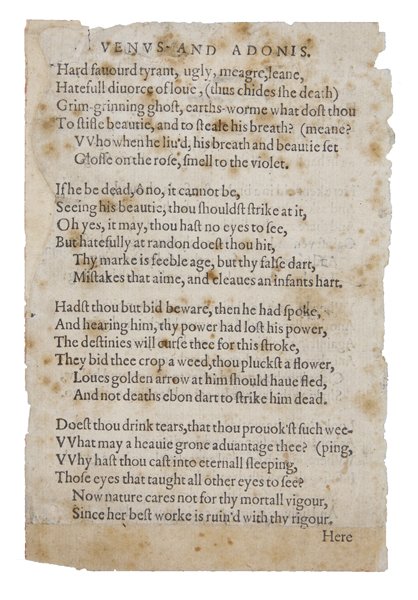 VENVS AND ADONIS.
Hard fauourd tyrant, ugly, meagre, leane,
Hatefull diuorce of loue, (thus chides ſhe death)
Grim-grinning ghoſt, earths-worme what doſt thou
To ſtifle beautie, and to ſteale his breath? (meane?
VVho when he liu'd, his breath and beautie ſet
Gloſſe on the roſe, ſmell to the violet.
If he be dead, ô no, it cannot be,
Seeing his beautie, thou ſhouldſt ſtrike at it,
Oh yes, it may, thou haſt no eyes to ſee,
But hatefully at randon doeſt thou hit,
Thy marke is feeble age, but thy falſe dart,
Miſtakes that aime, and cleaues an infants hart.
Hadſt thou but bid beware, then he had ſpoke,
And hearing him, thy power had loſt his power,
The deſtinies will curſe thee for this ſtroke,
They bid thee crop a weed, thou pluckſt a flower,
Loues golden arrow at him ſhould haue fled,
And not deaths ebon dart to ſtrike him dead.
Doeſt thou drink tears, that thou prouok'ſt ſuch wee-
VVhat may a heauie grone aduantage thee? (ping,
VVhy haſt thou caſt into eternall ſleeping,
Thoſe eyes that taught all other eyes to ſee?
Now nature cares not for thy mortall vigour,
Since her beſt worke is ruin'd with thy rigour.
Here